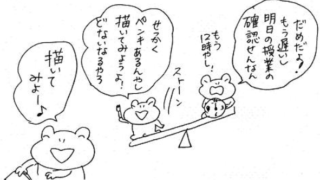 だめだよ!
もう遅いし
明日の授業の
確認せんなん
もう
12時やし!
ストーン
せっかく
ペンキあるんやし
描いてみようよ!
どないなるやろ
描いて
みよー♪